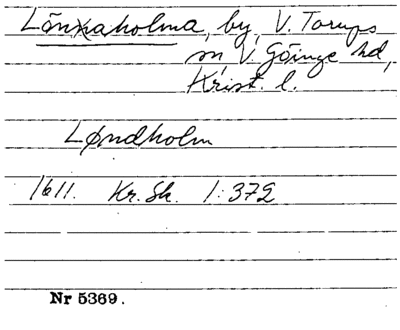 Lönnaholma, by, V. Torups
sn, V. Göinge hd,
Krist. l.
Løndholm
1611. Kr. Sk. 1:372
Nr 5369.